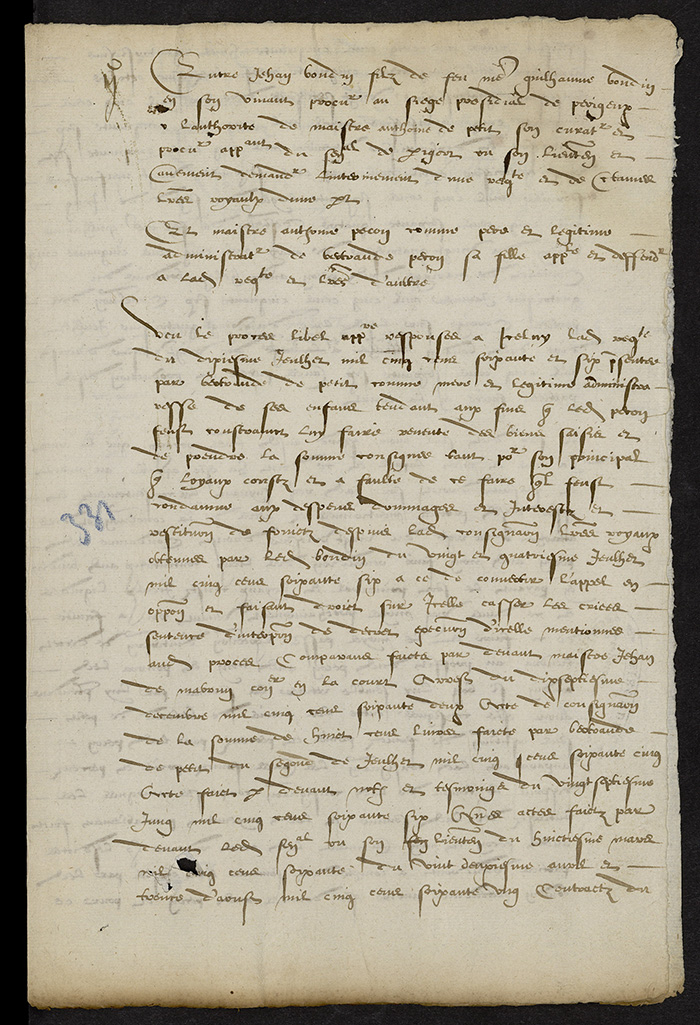 Entre Jehan bondin filz de feu me guilhaume bondin
en son vivant procur au siege presidial de perigeux
lauthorite de maistre anthoine de petit son curatr et
procur appant du senal de perigort ou son lieuten et
aultrement demandr linterinement dune reqte et de certaines
lres royaulx dune pt
Et maistre anthoine pecon comme pere et legitime
administratr de bertrande pecon sa fille appee et deffendr
a lad reqte et lres daultre
Veu le proces libel appve responses a icelluy lad reqte
du dixiesme Jeulhet mil cinq cens soixante et six presentee
par bertrande de petit comme mere et legitime administre
resse de ses enfans tendant aux fins q led pecon
feust constrainct luy faire revente des biens saisis et
de prendre la somme consignee tant por son principal
q loyaux coustz et a faulte de ce faire ql feust
condamne aux despens dommages et interestz et
restitution de fruictz despuis lad consignaon lres royaux
obtenues par led bondin du vingt et quatriesme Jeulhet
mil cinq cens soixante six a ce de convertir lappel en
oppon et faisant droict sur icelle casser les criees
sentence dinterpon de decret execution dicelle mentionnes
aud proces Comparans faicte par devant maistre Jehan
de conr en la court Arrest du dixseptiesme
decembre mil cinq cens soixante deux Acte de consignaon
de la somme de huict cens livres faicte par bertrande
de petit du segond de Jeulhet mil cinq cens soixante cinq
Acte faict p devant notre et tesmoings du vingtseptiesme
Juing mil cinq cens soixante six Aultres actes faictz par
devant led senal ou son lieuten du huictiesme mars
mil cinq cens soixante du vint deuxiesme avril et
trente daoust mil cinq cens soixante ung Contractz du
331